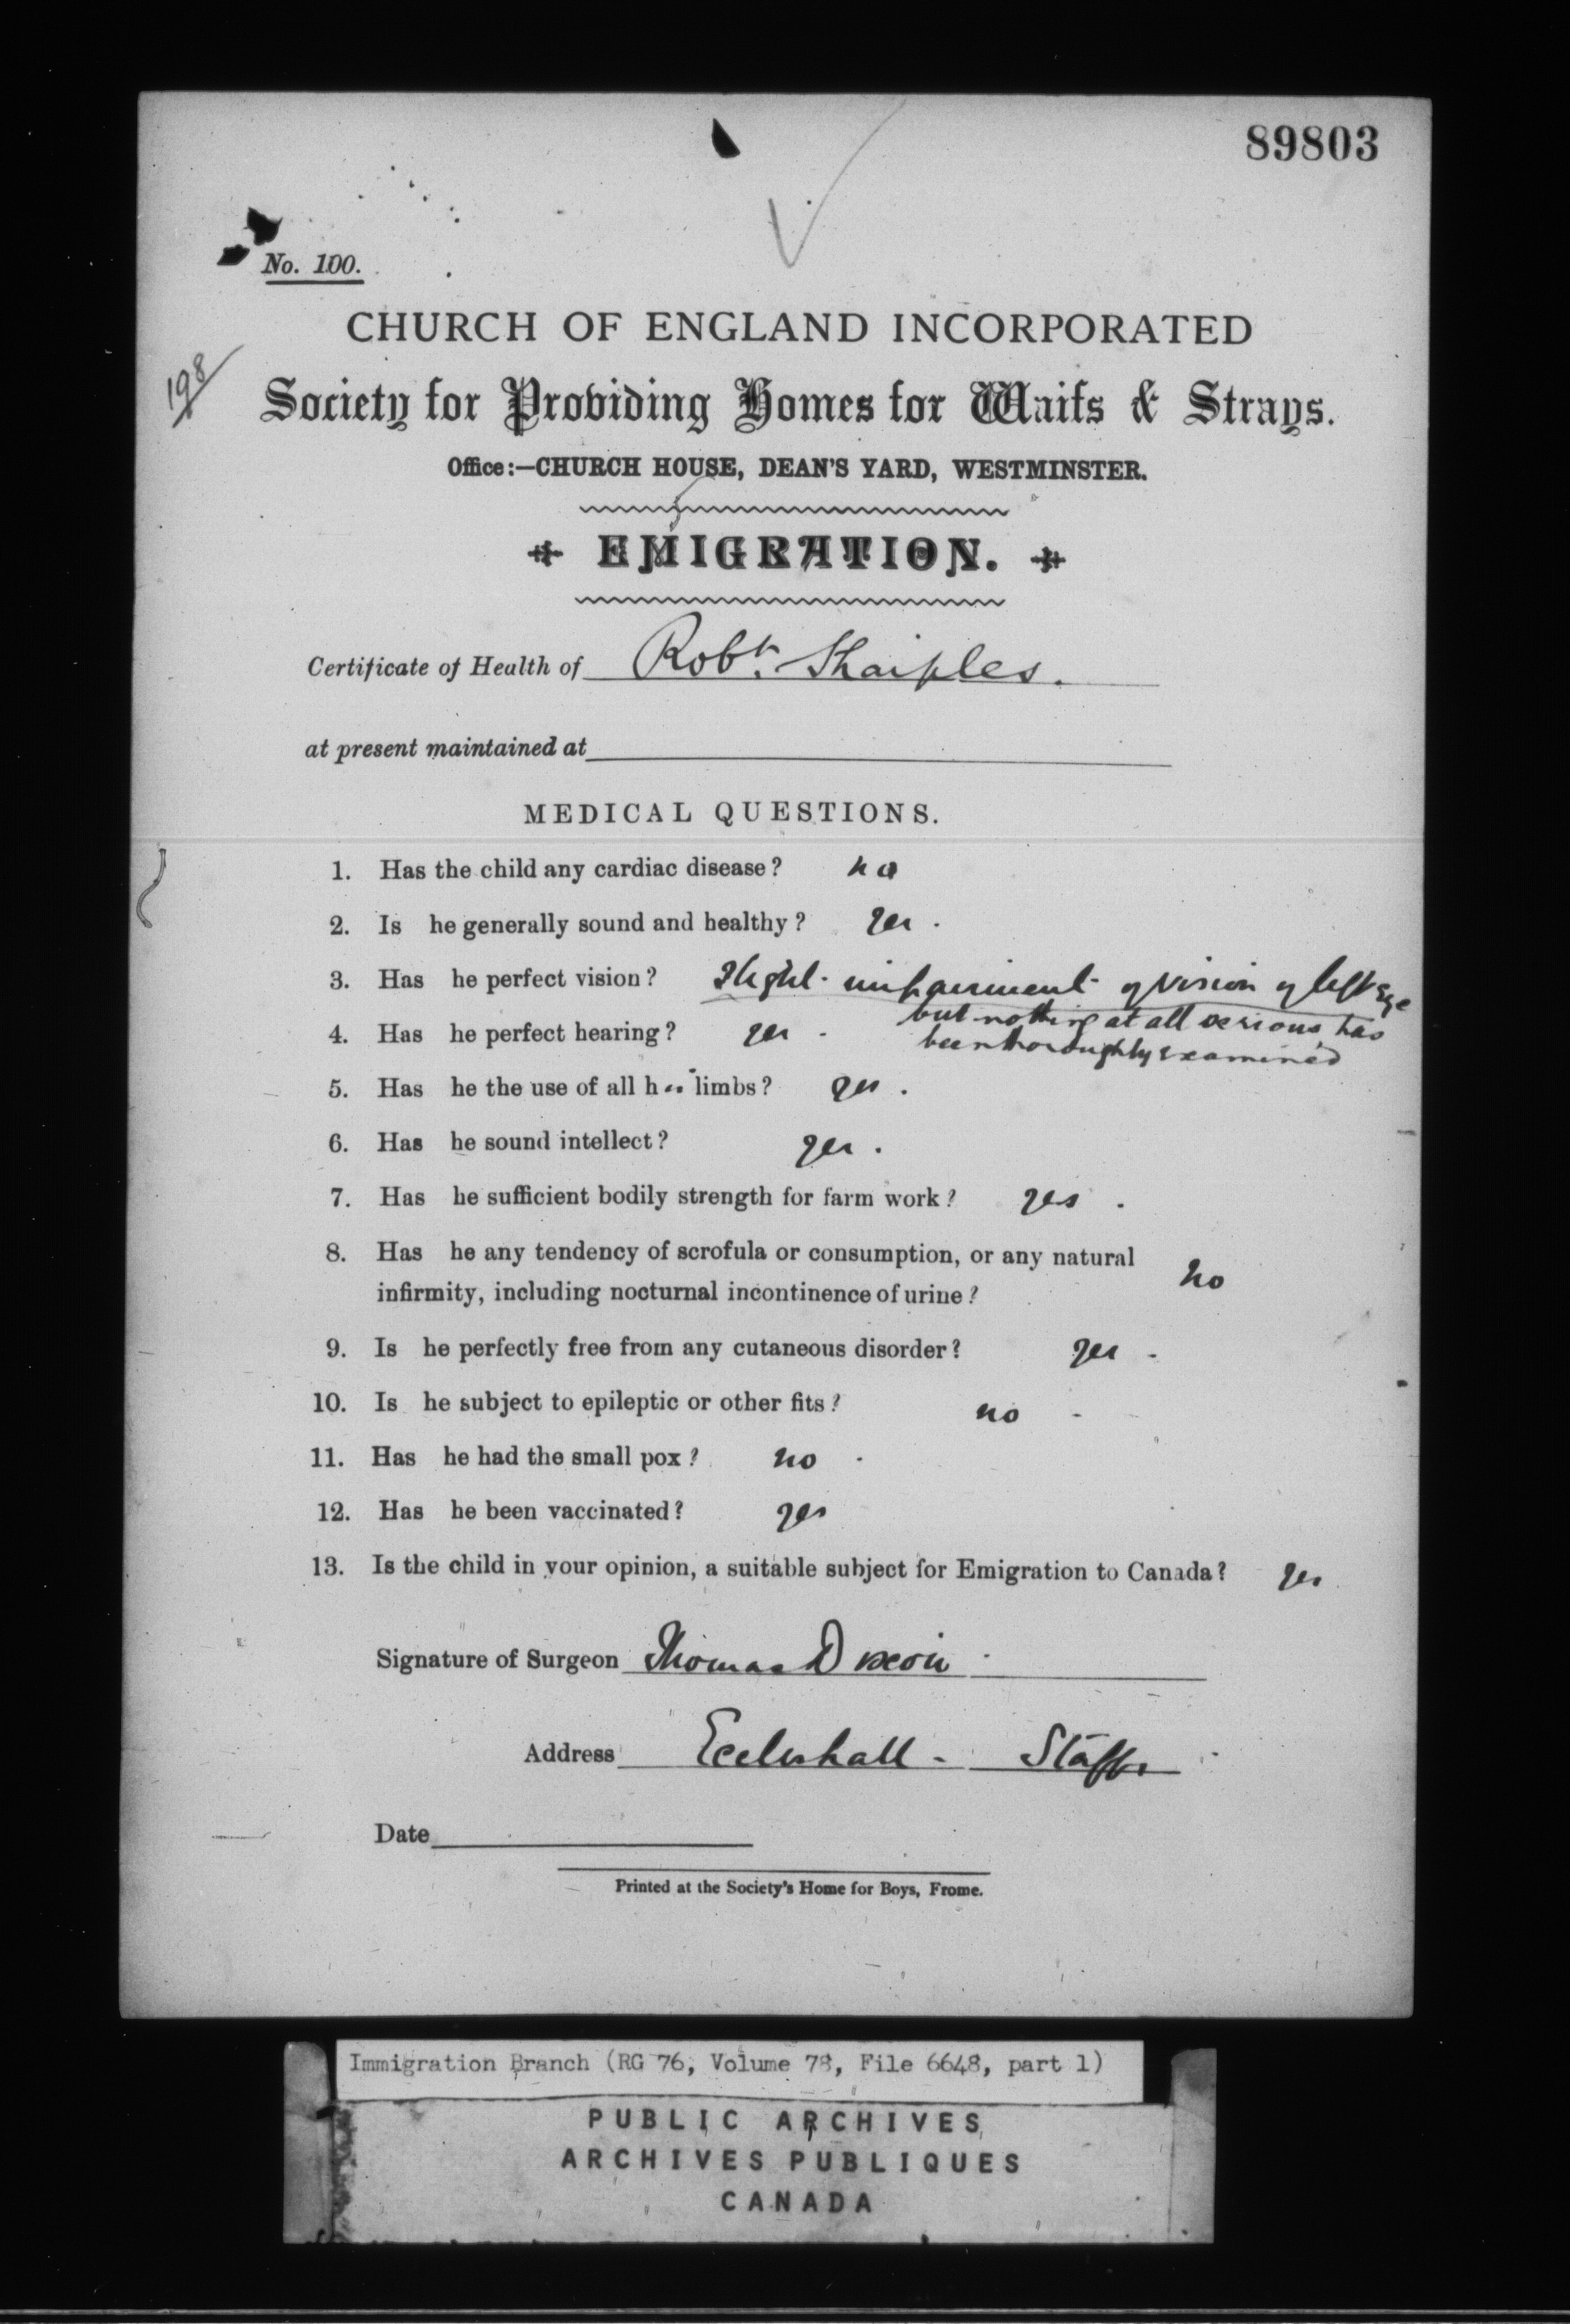 89803
No. 100.
198
CHURCH OF ENGLAND INCORPORATED
Society for Providing Homes for Waifs & Strays.
Office:—CHURCH HOUSE, DEAN'S YARD, WESTMINSTER.
EMIGRATION.
Certificate of Health of Robt. Sharples.
at present maintained at
MEDICAL QUESTIONS.
1. Has the child any cardiac disease? no
2. Is he generally sound and healthy? yes.
3. Has he perfect vision? Slight impairment of vision of left Eye
but nothing at all serious has
been thoroughly examined
4. Has he perfect hearing? yes.
5. Has he the use of all his limbs? yes.
6. Has he sound intellect? yes.
7. Has he sufficient bodily strength for farm work? yes.
8. Has he any tendency of scrofula or consumption, or any natural
infirmity, including nocturnal incontinence of urine? no
9. Is he perfectly free from any cutaneous disorder? yes -
10. Is he subject to epileptic or other fits? no -
11. Has he had the small pox? no.
12. Has he been vaccinated? yes
13. Is the child in your opinion, a suitable subject for Emigration to Canada? yes
Signature of Surgeon Thomas Dixon
Address Eccleshall - Staffs
Date
Printed at the Society's Home for Boys, Frome.
Immigration Branch (RG 76, Volume 78, File 6648, part 1)
PUBLIC ARCHIVES
ARCHIVES PUBLIQUES
CANADA